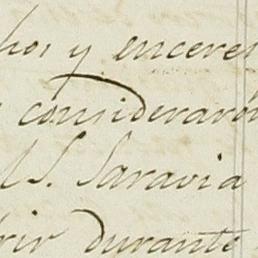 hos y enceres
consideraron
S. Saravia
rir durante